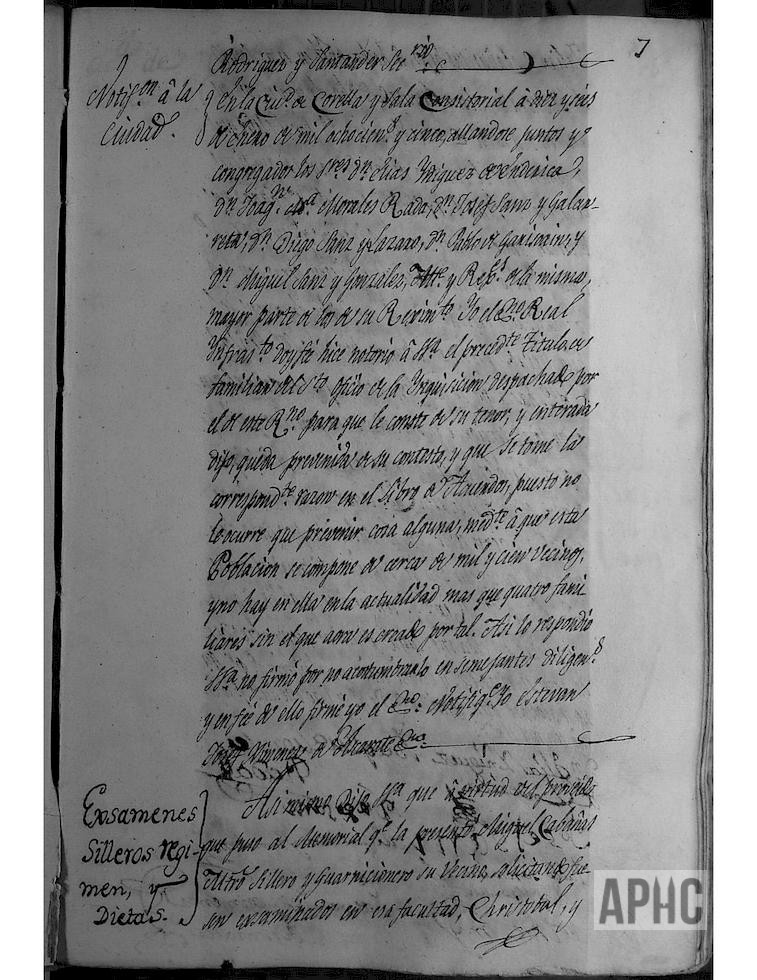 7
Rodriguez y Santander Sec rio
Notifon â la
Ciudad.
En la Ciud. de Corella y Sala Consistorial â diez y seis
de Enero de mil ochocients y cinco, allandose juntos y
congregados los Sres Dn. Elias Yñiguez de
Dn. Joagn. Ma Morales Rada, Dn. Josef Sanz y Galcer-
reta, Dn. Diego Sanz y Lazaro, Dn. Pablo de Garisoain, y
Dn. Miguel Sanz y Gonzalez, Alle. y Rexs. de la misma,
mayor parte de los de su Reximto. Yo el Eno. Real
Ynfrasto. doy fé hice notorio â Sa. el precedte. Titulo de
familiar del Sto. Oficio de la Ynquisicion despachado por
el de este Rno. para que le conste de su tenor, y enterada
dijo, queda prevenida de su contesto, y que se tome la
correspondte. razon en el Libro de Acuerdos, puesto no
le ocurre que prevenir cosa alguna, medte. â que esta
Poblacion se compone de cerca de mil y cien vecinos,
y no hay en ella en la actualidad mas que quatro fami
liares sin el que aora es creado por tal. Asi lo respondio
Sa. no firmó por no acostumbrarlo en semejantes diligens.
y en fée de ello firmé yo el Eno. Notifiqe. Yo Estevan
Josef Ximenez de Eno.
Exsamenes
Silleros regi-
men, y
Dietas.
Asi mismo dijo Sa. que ê virtud del proveido
que puso al Memorial qe. la presentó Miguel Cabañas
Mtro. Sillero y Guarnicionero su Vecino, solicitando fue
sen exsaminados en esa facultad, Christobal, y
APHC